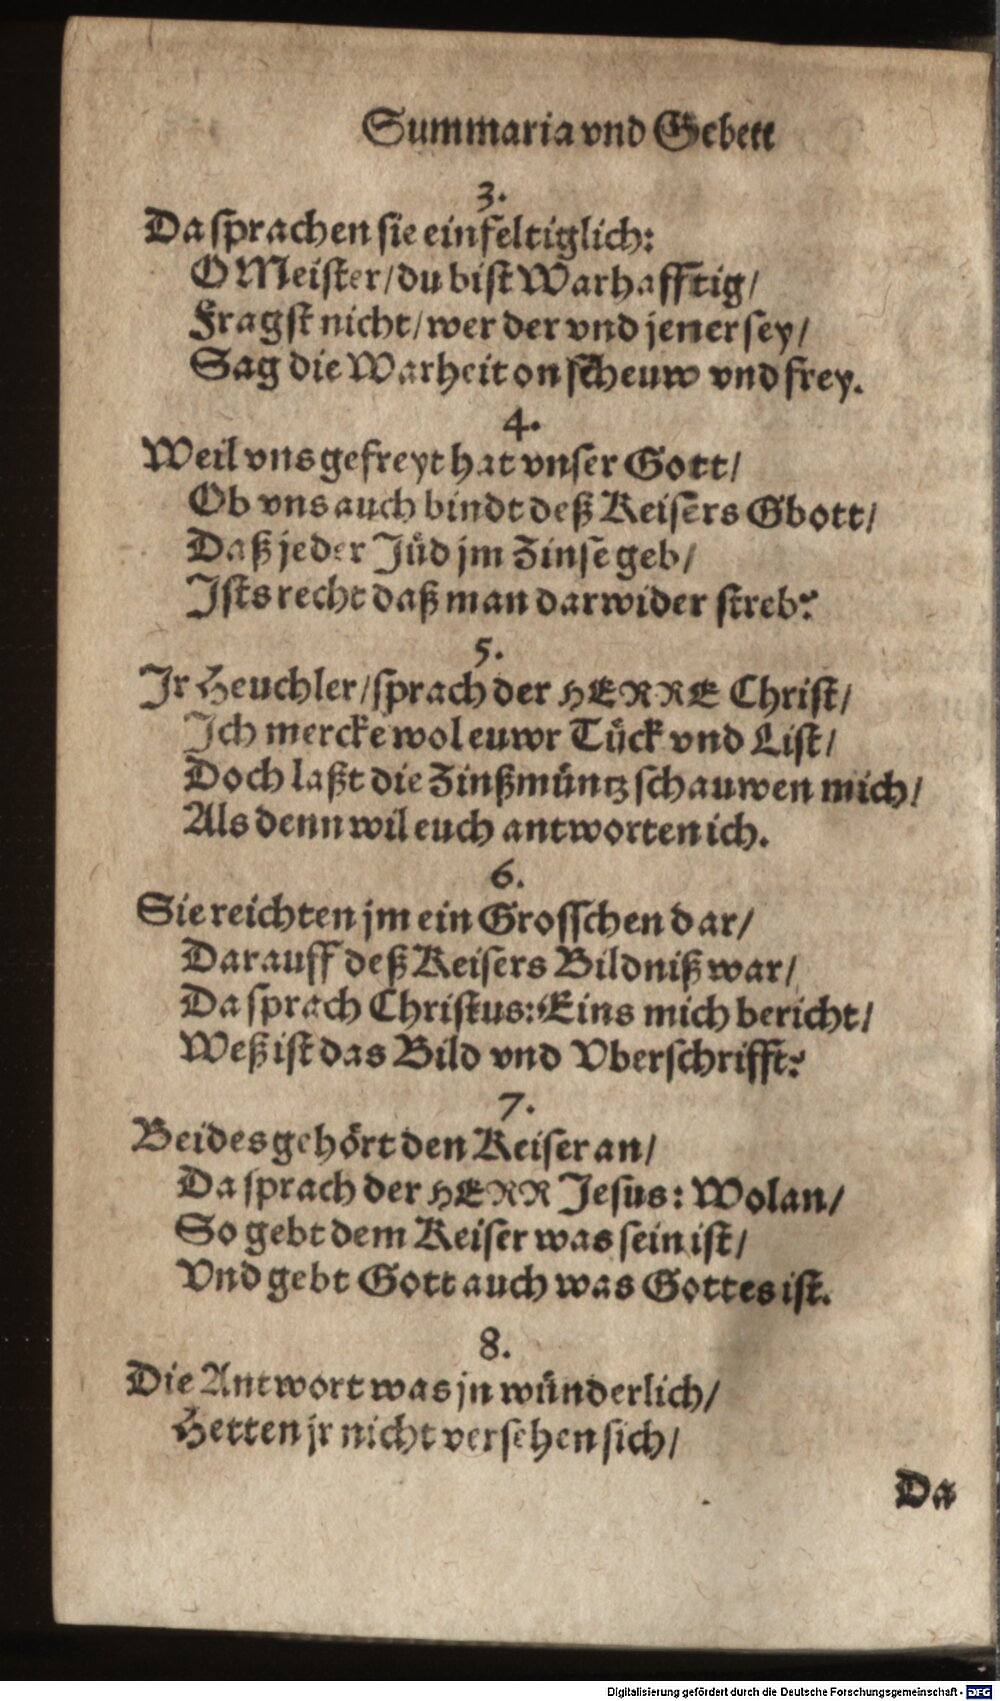 Summaria vnd Gebett
3.
Da sprachen sie einfeltiglich:
O Meister/ du bist Warhafftig/
Fragst nicht/ wer der vnd jener sey/
Sag die Warheit on scheuw vnd frey.
4.
Weil vns gefreyt hat vnser Gott/
Ob vns auch bindt deß Keisers Gbott/
Daß jeder Jüd jm Zinse geb/
Ists recht daß man darwider streb?
5.
Jr Heuchler/ sprach der HERRE Christ/
Ich mercke wol euwr Tück vnd List/
Doch laßt die Zinßmüntz schauwen mich/
Als denn wil euch antworten ich.
6.
Sie reichten jm ein Grosschen dar/
Darauff deß Keisers Bildniß war/
Da sprach Christus: Eins mich bericht/
Weß ist das Bild vnd Vberschrifft?
7.
Beides gehört den Keiser an/
Da sprach der HERR Jesus: Wolan/
So gebt dem Keiser was sein ist/
Vnd gebt Gott auch was Gottes ist.
8.
Die Antwort was jn wünderlich/
Hetten jr nicht versehen sich/
Da
Digitalisierung gefördert durch die Deutsche Forschungsgemeinschaft - DFG